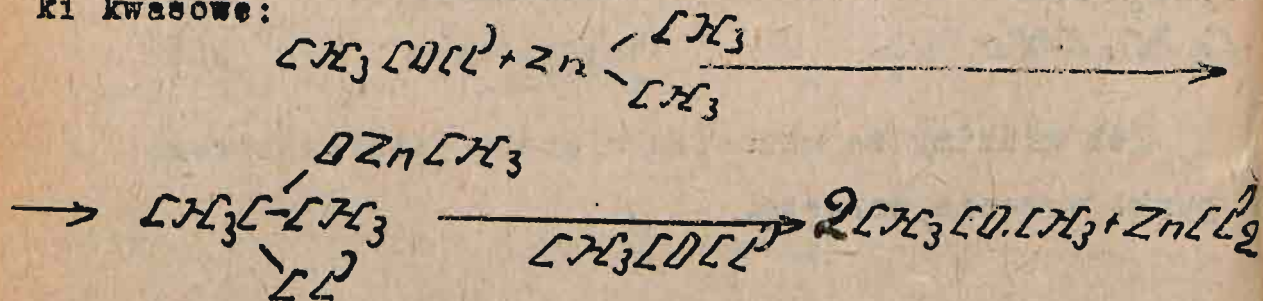 ki kwasowe:
CH3COCl + Zn
CH3
CH3
OZnCH3
CH3C-CH3
Cl
CH3COCl
2CH3CO.CH3+ZnCl2